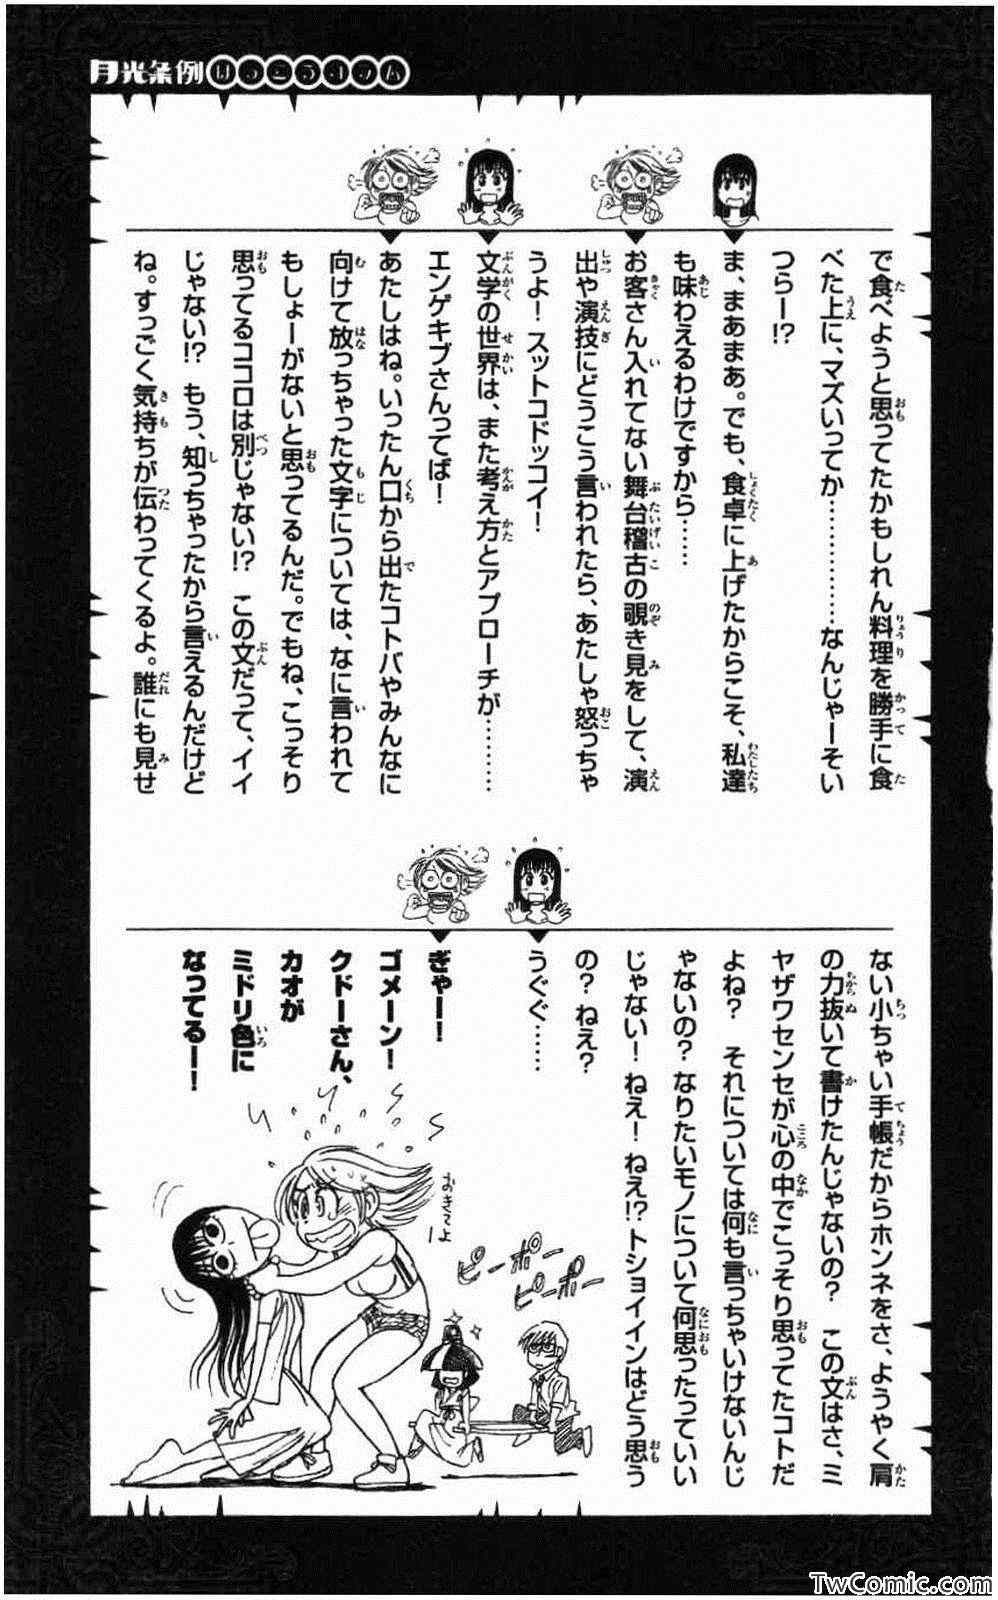 月光条例はっこうイッム
で食べようと思ってたかもしれん料理を勝手に食
べた上に、マズいってか…………なんじゃーそい
つらー!?
ま、まあまあ。でも、食卓に上げたからこそ、私達
も味わえるわけですから……
お客さん入れてない舞台稽古の覗き見をして、演
出や演技にどうこう言われたら、あたしゃ怒っちゃ
うよ！スットコドッコイ！
文学の世界は、また考え方とアプローチが…………
エンゲキブさんってば！
あたしはね。いったん口から出たコトバやみんなに
向けて放っちゃった文字については、なに言われて
もしょーがないと思ってるんだ。でもね、こっそり
思ってるココロは別じゃない!?　この文だって、イイ
じゃない!?　もう、知っちゃったから言えるんだけど
ね。すっごく気持ちが伝わってくるよ。誰にも見せ
ない小ちゃい手帳だからホンネをさ、ようやく肩
の力抜いて書けたんじゃないの？　この文はさ、ミ
ヤザワセンセが心の中でこっそり思ってたコトだ
よね？　それについては何も言っちゃいけないんじ
ゃないの？なりたいモノについて何思ったっていい
じゃない！ねえ！ねえ!?トショイインはどう思う
の？ねえ？
うぐぐ……
ぎゃー！
ゴメーン！
クドーさん、
カオが
ミドリ色に
なってるー！
おきてよー
ピーポー
ピーポー
TwComic.com